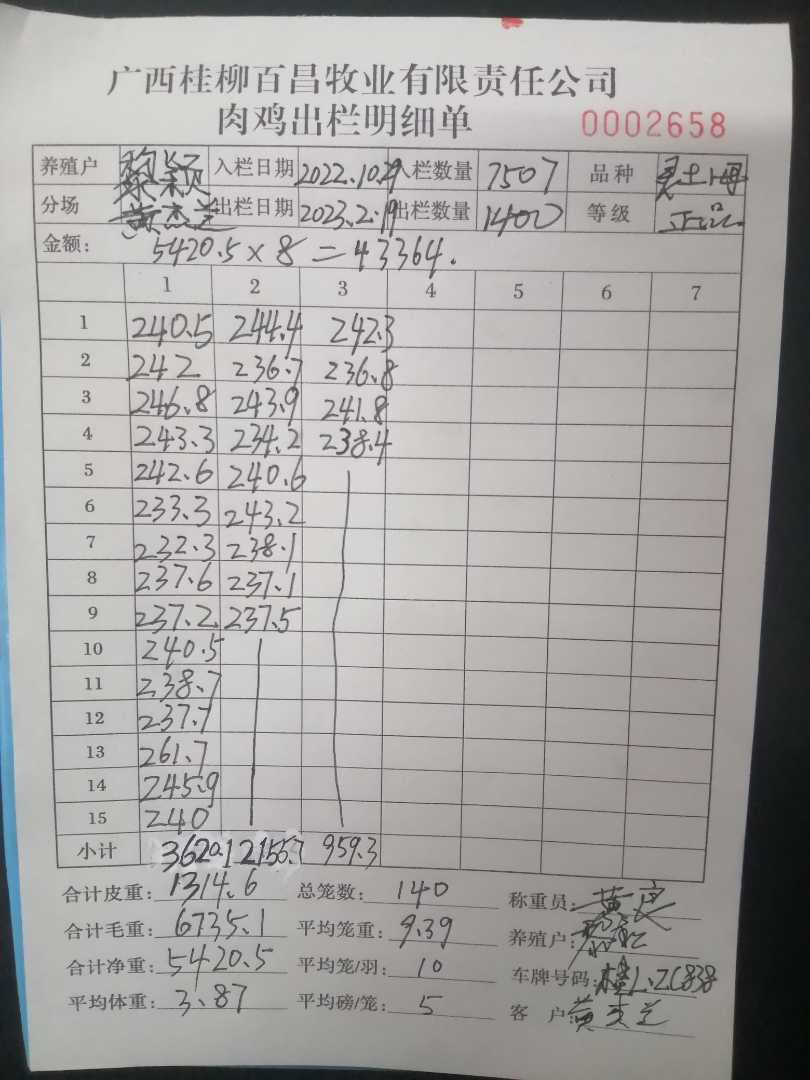 广西桂柳百昌牧业有限责任公司
肉鸡出栏明细单 0002658
养殖户 黎颖 入栏日期 2022.10.29 入栏数量 7507 品种 灵土小母
分场 黄杰兰 出栏日期 2023.2.19 出栏数量 1400 等级 正品
金额: 5420.5×8=43364.
1 2 3 4 5 6 7
1 240.5 244.4 242.3
2 242 236.7 236.8
3 246.8 243.9 241.8
4 243.3 234.2 238.4
5 242.6 240.6
6 233.3 243.2
7 232.3 238.1
8 237.6 237.1
9 237.2 237.5
10 240.5
11 238.7
12 237.7
13 261.7
14 245.9
15 240
小计 3620.1 2155.7 959.3
合计皮重: 1314.6 总笼数: 140 称重员:
合计毛重: 6735.1 平均笼重: 9.39 养殖户:
合计净重: 5420.5 平均笼/羽: 10 车牌号码: 桂L.ZC838
平均体重: 3.87 平均磅/笼: 5 客户: 黄杰兰